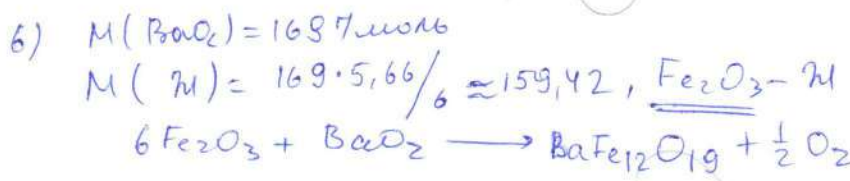 6) M(BaO₂) = 169 г/моль
M(M) = 169·5,66/6 ≈ 159,42, Fe₂O₃ - M
6Fe₂O₃ + BaO₂ → BaFe₁₂O₁₉ + ½ O₂